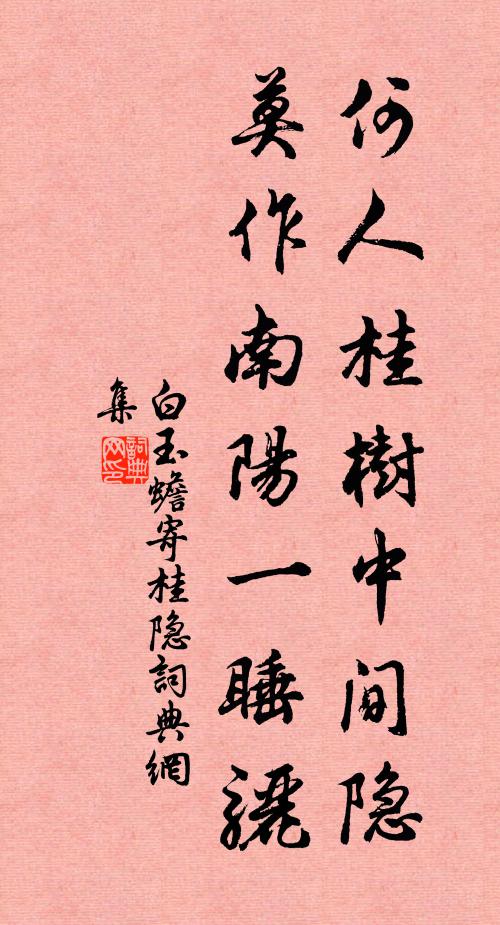 何人桂樹中間隐
莫作南陽一睡驪
白玉蟾寄桂隐詞典網
集
詞典網印